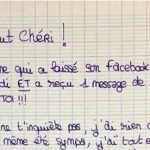 ut Chéri !
ne qui a laissé son facebook
di ET a reçu 1 message de
TOI !!!
ne t'inquiète pas, j'ai rien d
même été sympa, j'ai tat e